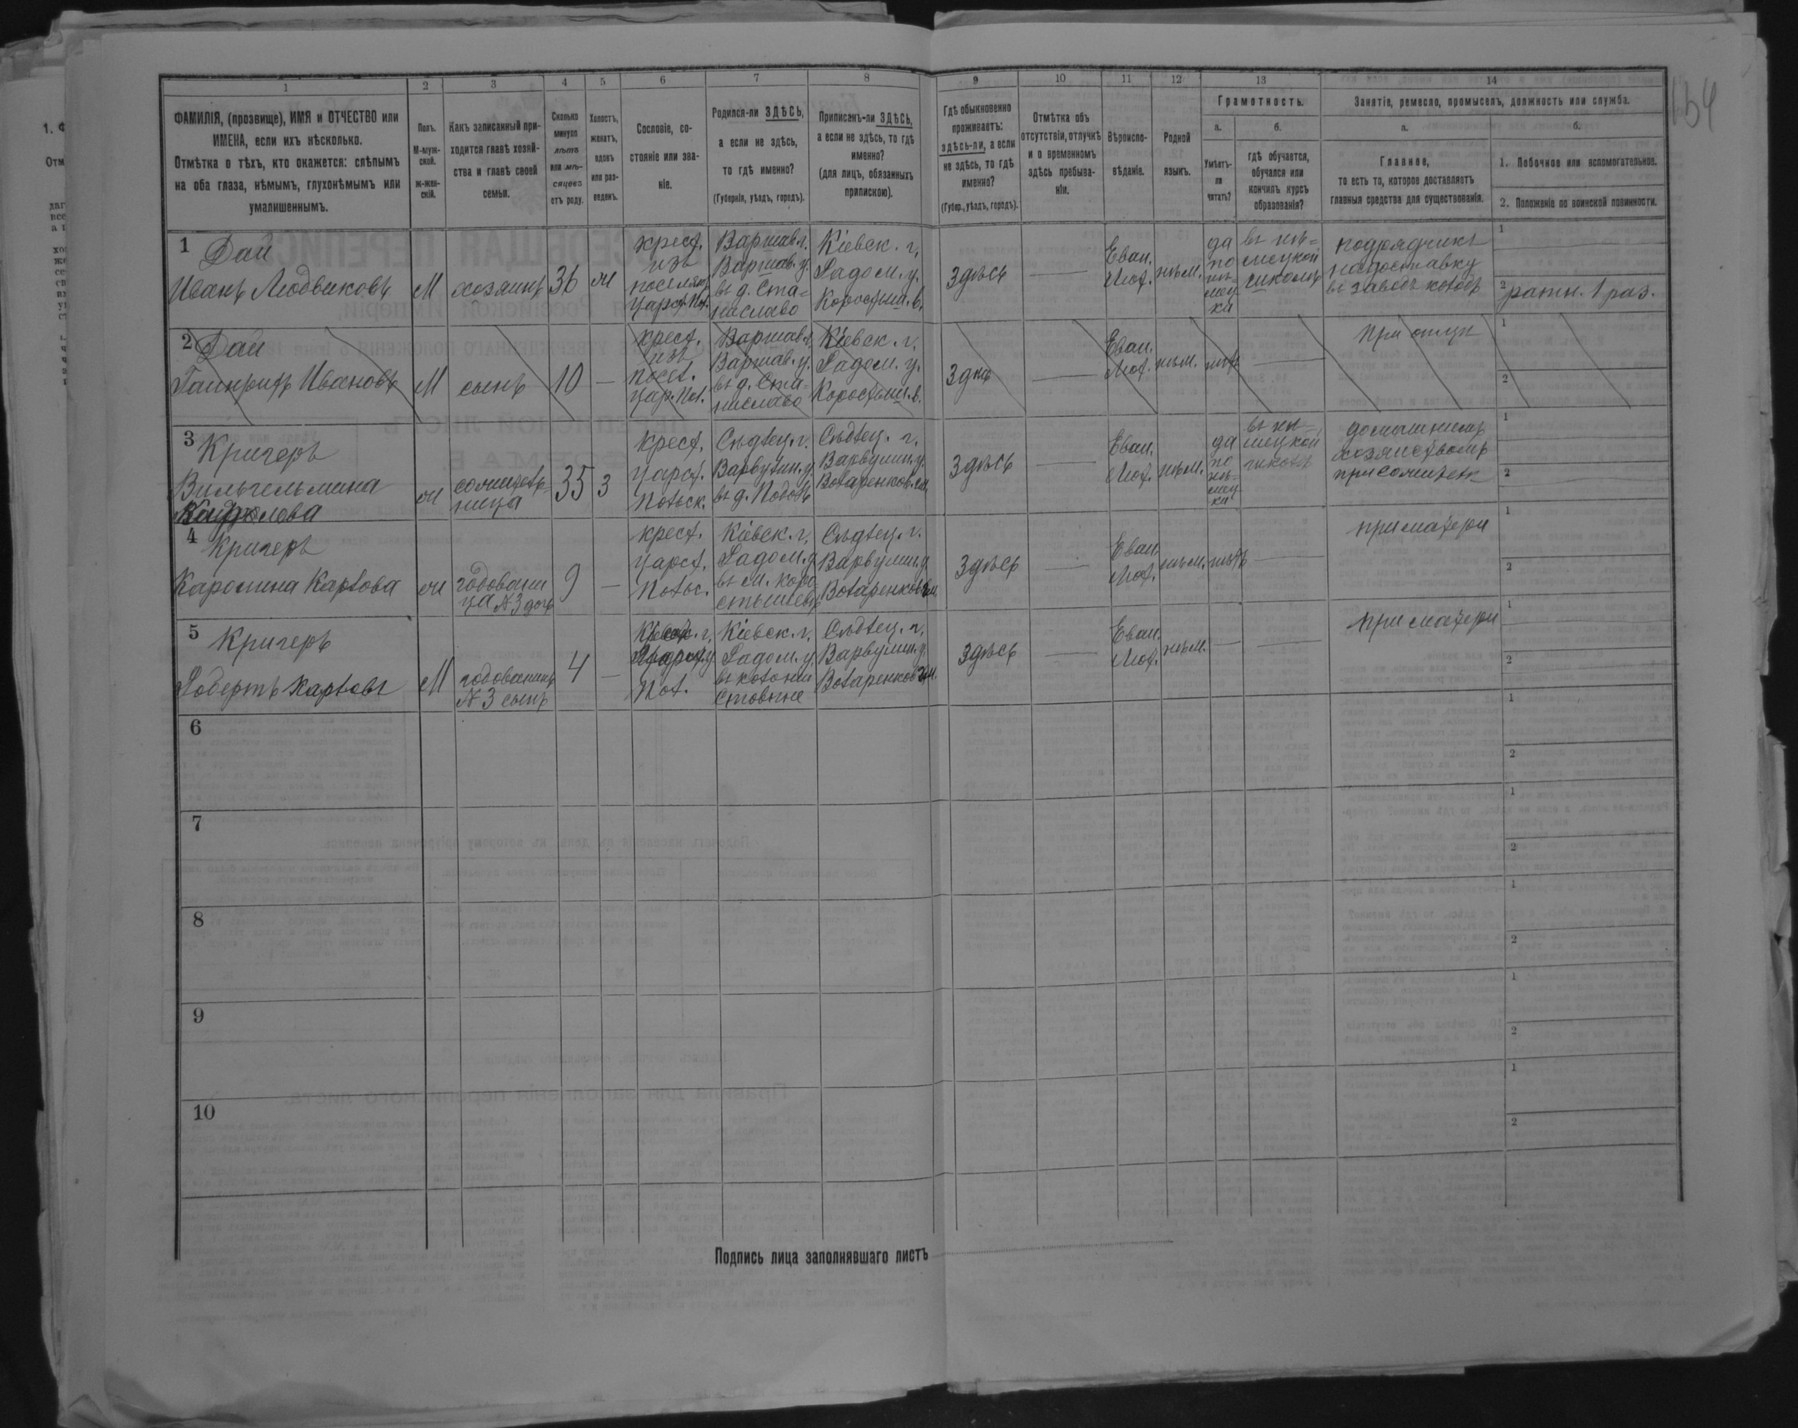 1 2 3 4 5 6 7 8 9 10 11 12 13 14
ФАМИЛІЯ, (прозвище), ИМЯ и ОТЧЕСТВО или
ИМЕНА, если ихъ нѣсколько.
Отмѣтка о тѣхъ, кто окажется: слѣпымъ
на оба глаза, нѣмымъ, глухонѣмымъ или
умалишеннымъ.
Полъ.
М-муж-
ской.
ж-жен-
скій.
Какъ записанный при-
ходится главѣ хозяй-
ства и главѣ своей
семьи.
Сколько
минуло
лѣтъ
или мѣ-
сяцевъ
отъ роду.
Холостъ,
женатъ,
вдовъ
или раз-
веденъ.
Сословіе, со-
стояніе или зва-
ніе.
Родился-ли ЗДѢСЬ,
а если не здѣсь,
то гдѣ именно?
(Губернія, уѣздъ, городъ).
Приписанъ-ли ЗДѢСЬ,
а если не здѣсь, то гдѣ
именно?
(для лицъ, обязанныхъ
припискою).
Гдѣ обыкновенно
проживаетъ:
здѣсь-ли, а если
не здѣсь, то гдѣ
именно?
(Губер., уѣздъ, городъ).
Отмѣтка объ
отсутствіи, отлучкѣ
и о временномъ
здѣсь пребыва-
ніи.
Вѣроиспо-
вѣданіе.
Родной
языкъ.
Грамотность.
а.
Умѣетъ-
ли
читать?
б.
гдѣ обучается,
обучался или
кончилъ курсъ
образованія?
Занятія, ремесло, промыселъ, должность или служба.
а.
Главное,
то есть то, которое доставляетъ
главныя средства для существованія.
б.
1. Побочное или вспомогательное.
2. Положеніе по воинской повинности.
154
1
Дай
Иванъ Людвиковъ
М
хозяинъ
36
ж
крест.
изъ
поселян
царст. Пол.
Варшав. г.
Варшав. у.
въ д. Ста-
ниславо
Кіевск. г.
Радом. у.
Коростыш. в.
здѣсь
Еван.
Лют.
нѣм.
да
по
нѣ-
мец-
ки
въ нѣ-
мецкой
школѣ
подрядчикъ
на поставку
въ заводъ колодъ
1
2
ратн. 1 раз.
2
Дай
Гайнрихъ Ивановъ
М
сынъ
10
крест.
изъ
посел.
цар. Пол.
Варшав. г.
Варшав. у.
въ д. Ста-
ниславо
Кіевск. г.
Радом. у.
Коростыш. в.
здѣсь
Еван.
Лют.
нѣм.
нѣтъ
при отцѣ
1
2
3
Кригеръ
Вильгельмина
ж
35
з
крест.
царст.
Польск.
Сѣдлец. г.
въ д.
Сѣдлец. г.
здѣсь
Еван.
Лют.
нѣм.
да
по
нѣ-
мец-
ки
въ нѣ-
мецкой
школѣ
домашнимъ
хозяйствомъ
1
2
4
Кригеръ
Каролина Карлова
ж
№ 3 дочь
9
крест.
царст.
Польс.
Кіевск. г.
Радом. у.
въ м. Коро-
стышевѣ
Сѣдлец. г.
здѣсь
Еван.
Лют.
нѣм.
нѣтъ
при матери
1
2
5
Кригеръ
Робертъ Карловъ
М
№ 3 сынъ
4
Пол.
Кіевск. г.
Радом. у.
въ колоніи
Сѣдлец. г.
здѣсь
Еван.
Лют.
нѣм.
при матери
1
2
6
1
2
7
1
2
8
1
2
9
1
2
10
1
2
Подпись лица заполнявшаго листъ